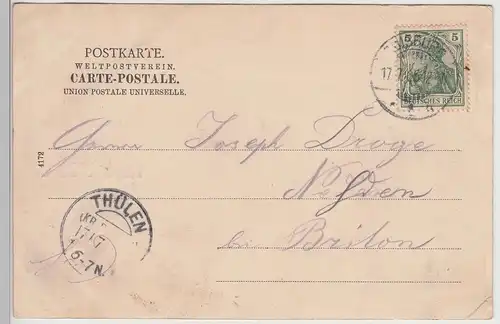 POSTKARTE.
WELTPOSTVEREIN.
CARTE-POSTALE.
UNION POSTALE UNIVERSELLE.
5 5
DEUTSCHES REICH
17.
Herrn Joseph Dröge
bei Brilon
4172
THÜLEN
(KR.
17/7
6-7N.